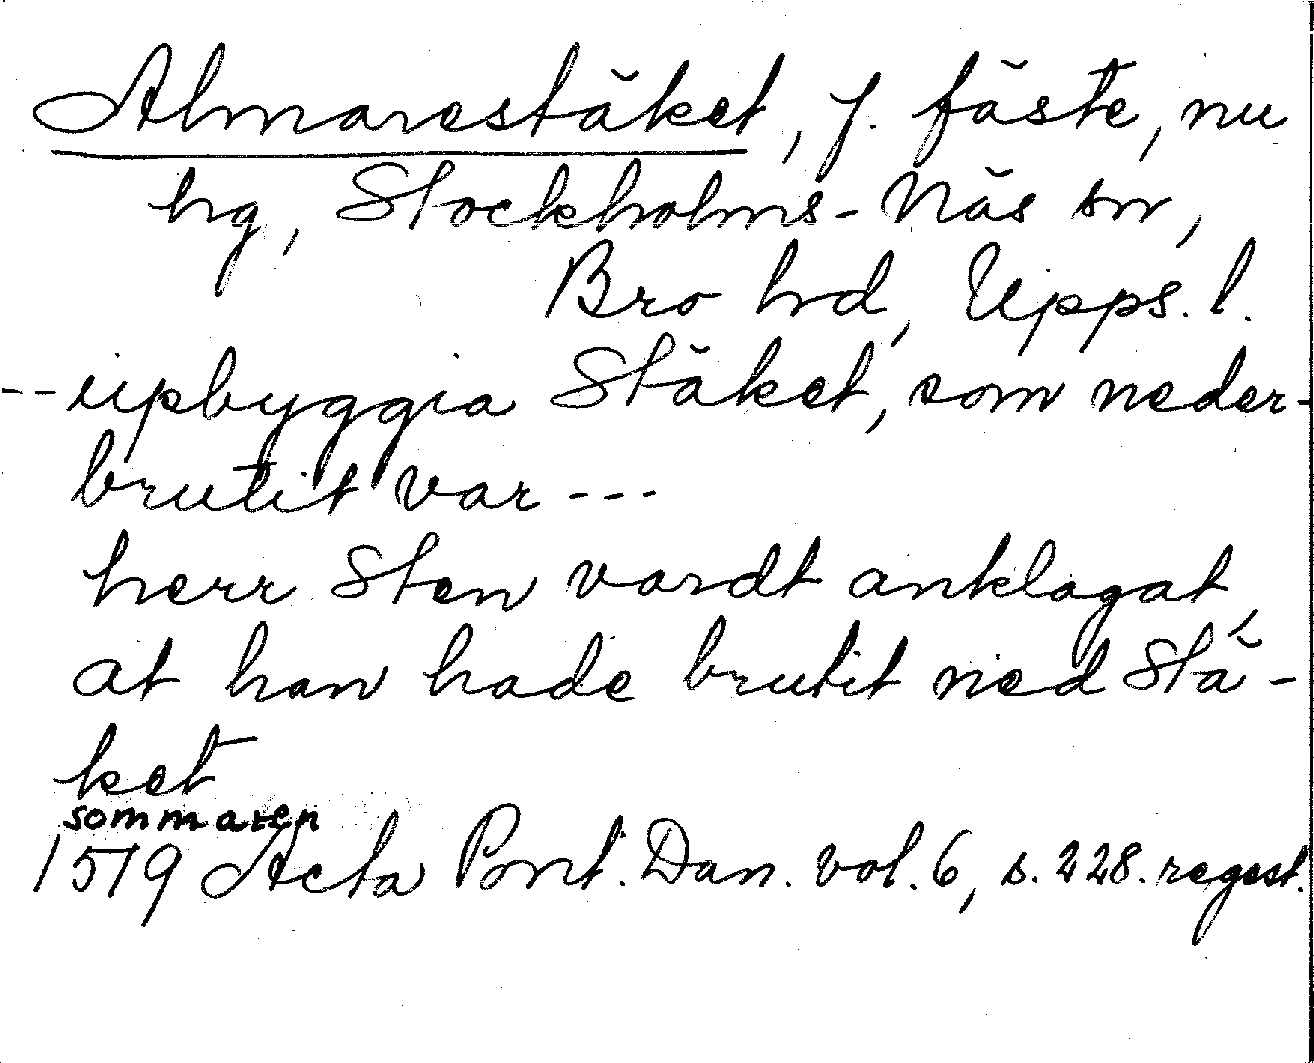 Almarestäket, f. fäste, nu
hg, Stockholms-Näs sn,
Bro hd, Upps. l.
-- upbyggia Stäket, som neder-
brutit var ---
herr Sten vardt anklagat,
at han hade brutit ned Stä-
ket
sommaren
1519 Acta Pont. Dan. vol. 6, s. 228. regest.